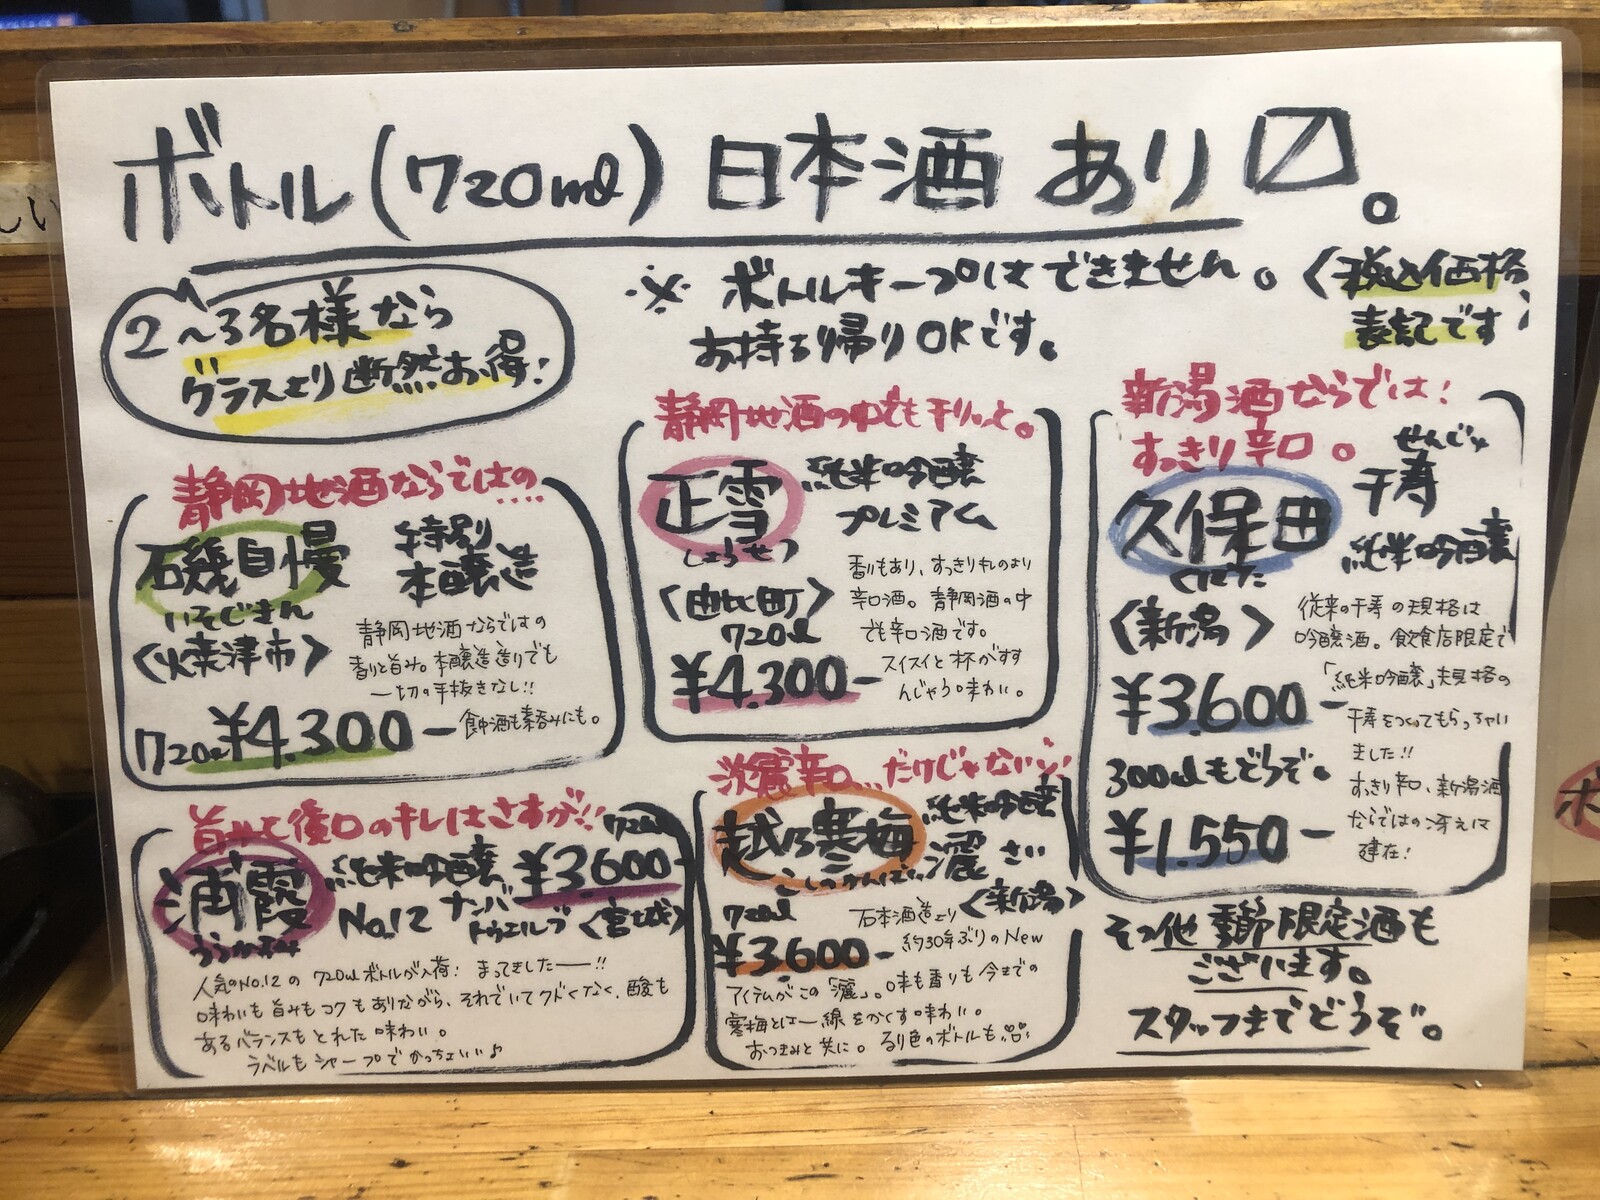 ボトル(720ml)日本酒あり〼。
2〜3名様なら
グラスより断然お得!
※ボトルキープはできません。
お持ち帰りOKです。
〈税込価格
表記です〉
静岡地酒ならではの…
磯自慢
いそじまん
特別
本醸造
〈焼津市〉
静岡地酒ならではの
香りと旨み。本醸造造りでも
一切の手抜きなし!!
食中酒も素呑みにも。
720ml ¥4.300−
静岡地酒の中でもキリッと。
正雪
しょうせつ
純米吟醸
プレミアム
〈由比町〉
720ml
¥4.300−
香りもあり、すっきりキレのより
辛口酒。静岡酒の中
でも辛口酒です。
スイスイと杯がすす
んじゃう味わい。
新潟酒ならでは!
すっきり辛口。
久保田
くぼた
せんじゅ
千寿
純米吟醸
〈新潟〉
¥3.600−
300mlもどうぞ。
¥1.550−
従来の千寿の規格は
吟醸酒。飲食店限定で
「純米吟醸」規格の
千寿をつくってもらっちゃい
ました!!
すっきり辛口、新潟酒
ならではの冴えは
健在!
旨みと後口のキレはさすが!!
浦霞
うらかすみ
純米吟醸
No.12
ナンバー
トゥエルブ
720ml
¥3.600−
〈宮城〉
人気のNo.12の720mlボトルが入荷!まってましたーー!!
味わいも旨みもコクもありながら、それでいてクドくなく、酸も
あるバランスもとれた味わい。
ラベルもシャープでかっちょいい♪
淡麗辛口…だけじゃない!!
越乃寒梅
こしのかんばい
純米吟醸
灑 さい
〈新潟〉
720ml
¥3.600−
石本酒造より
約30年ぶりのNew
アイテムがこの「灑」。味も香りも今までの
寒梅とは一線をかくす味わい。
おつまみと共に。るり色のボトルも
その他季節限定酒も
ございます。
スタッフまでどうぞ。